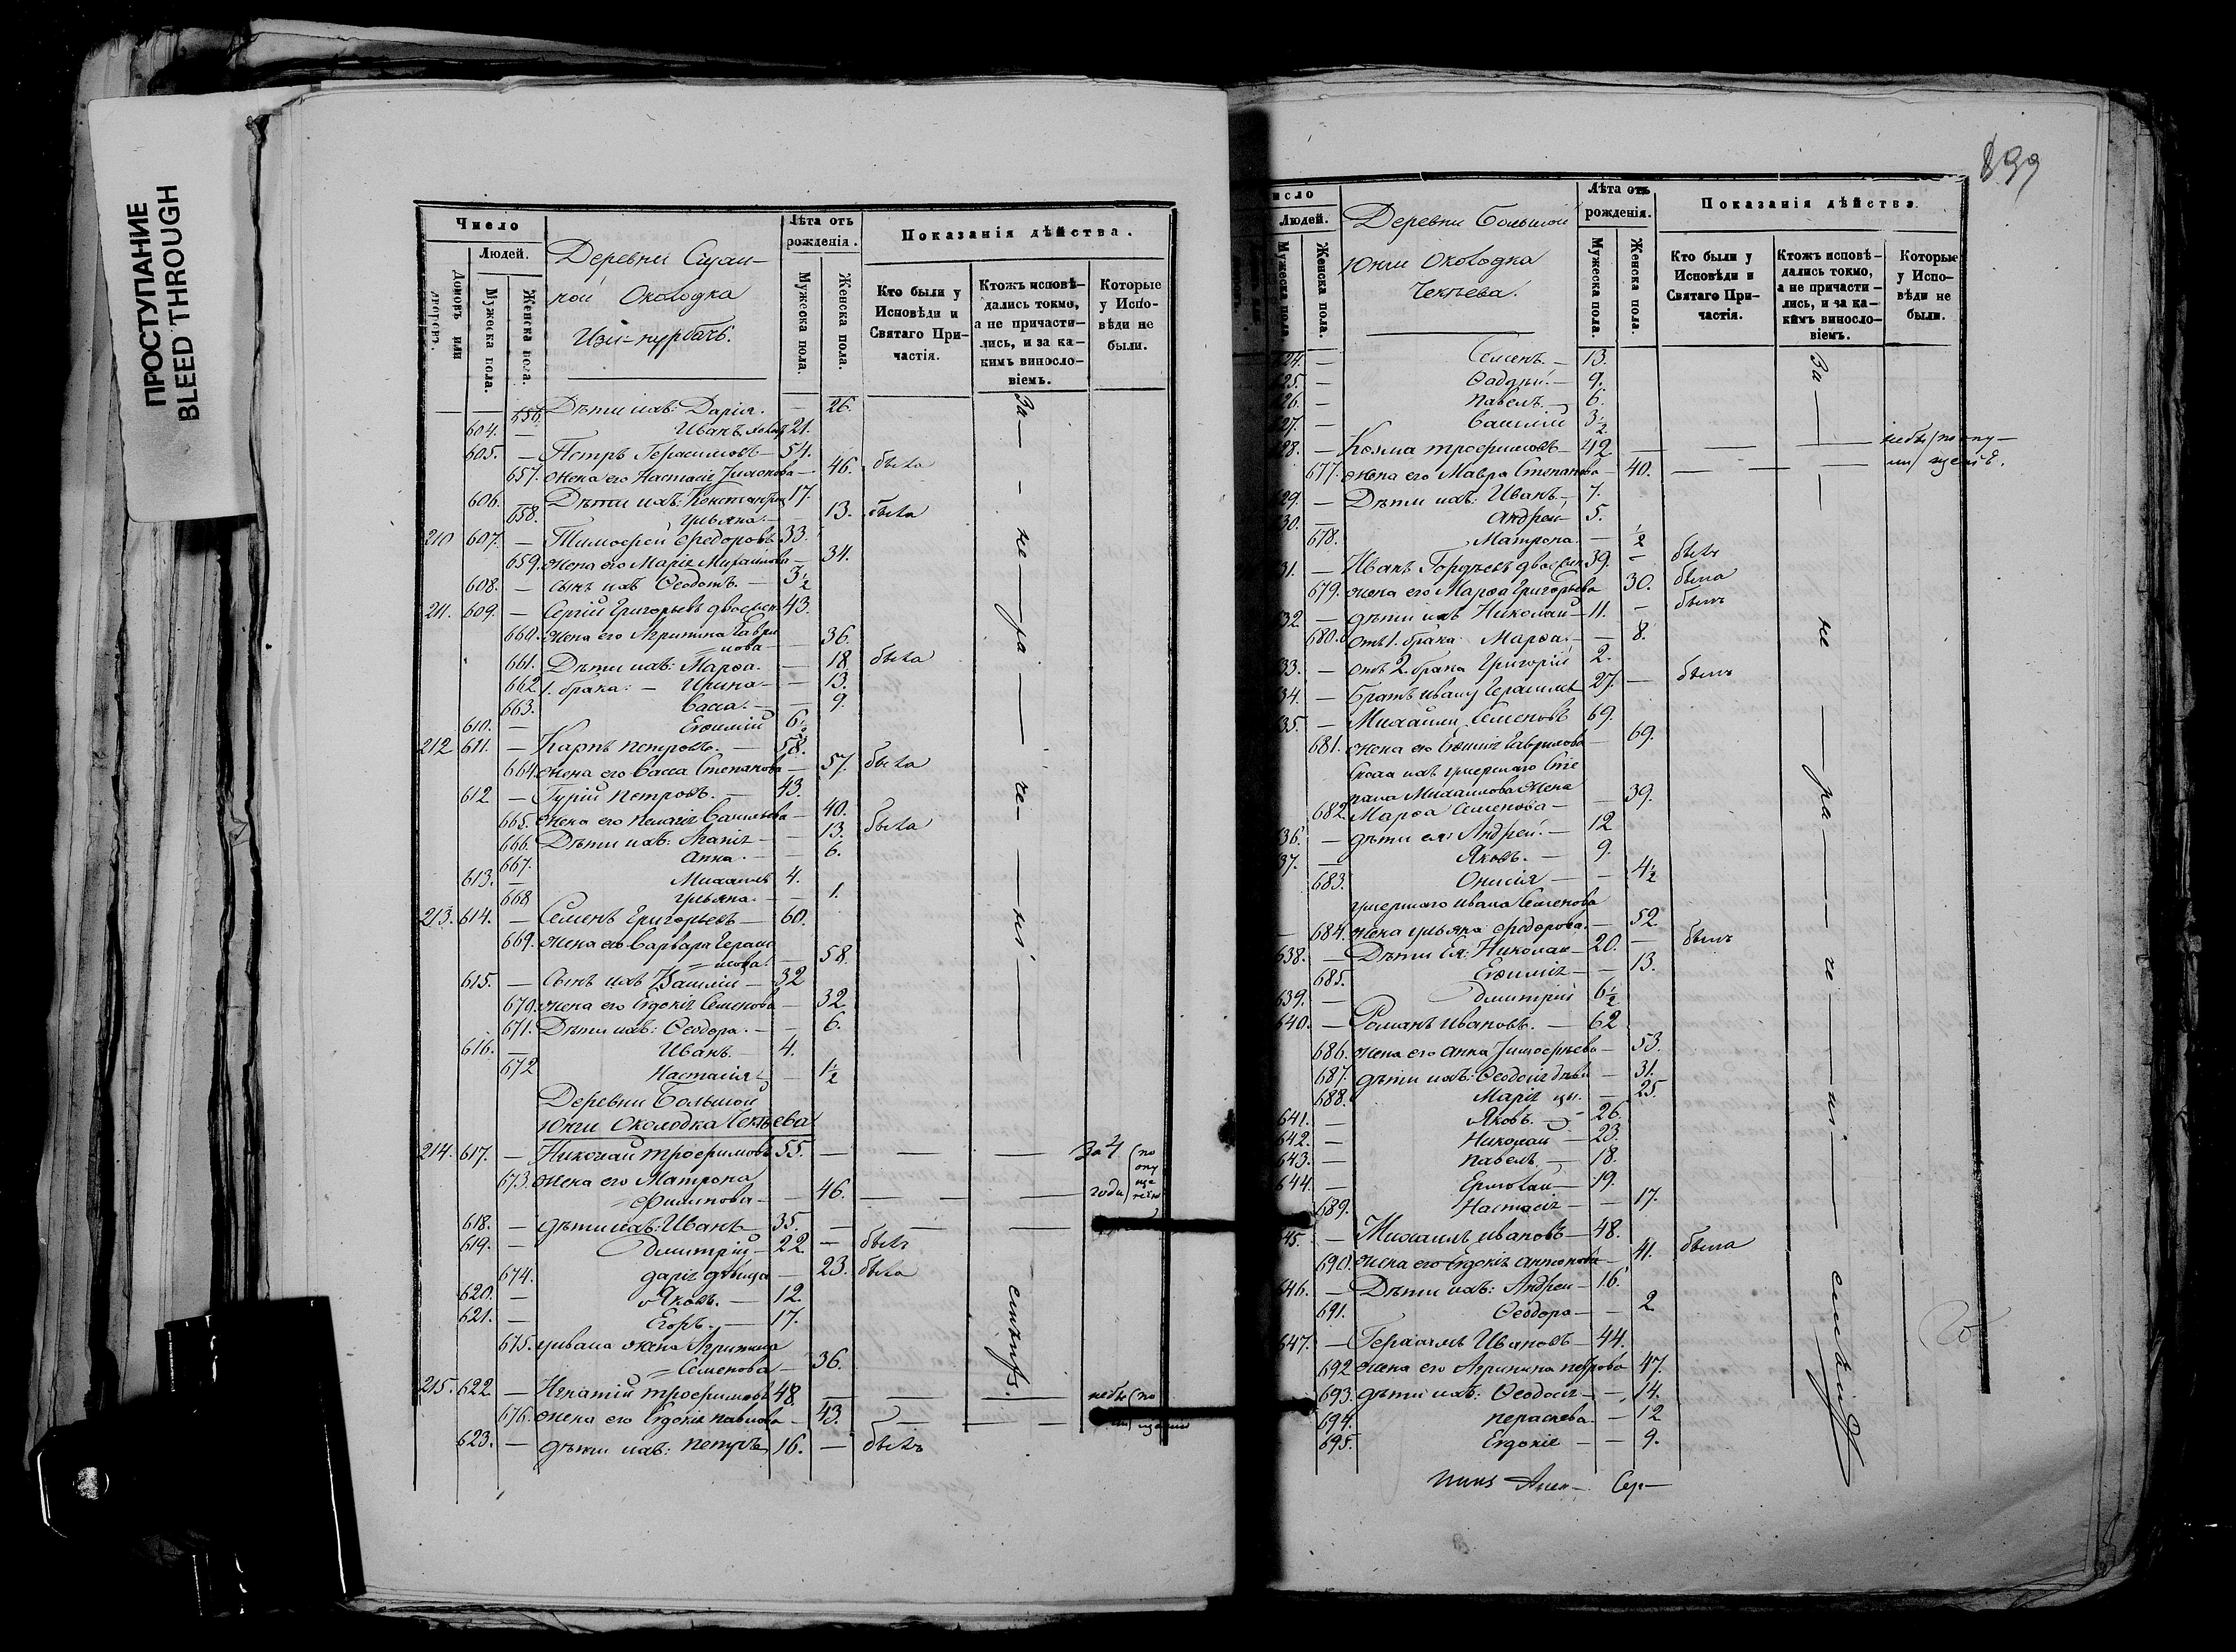 ПРОСТУПАНИЕ
BLEED THROUGH
Число
Людей.
Домовъ или
Мужеска пола.
Женска пола.
Деревни
ной Околодка
Лѣта отъ рожденія.
Мужеска пола.
Женска пола.
Показанія дѣйства.
Кто были у Исповѣди и Святаго Причастія.
Ктожъ исповѣдались токмо, а не причастились, и за какимъ винословіемъ.
Которые у Исповѣди не были.
За не ра че ні
656. Дѣти ихъ: Дарія. — 26.
604. — Иванъ 21.
605. — Петръ Герасимовъ — 54.
657. жена его Настасія — 46. была
606. Дѣти ихъ: 17.
658. Ульяна. — 13. была
210 607. — Тимофей Федоровъ 33.
659. жена его Марія Михайлова — 34.
608. — сынъ ихъ Ѳеодотъ. — 3½
211. 609. — Сергій Григорьевъ 43.
660. жена его Агрипина — 36.
661. Дѣти ихъ: Марѳа. — 18. была
662 1. брака: — Ирина — 13.
663. Васса. — 9.
610. — Евѳимій 6½
212 611. — Карпъ Петровъ. — 58.
664. жена его Васса Степанова — 57. была
612 — Гурій Петровъ. — 43.
665. жена его Пелагія Васильева — 40.
666. Дѣти ихъ: — 13. была
667. Анна. — 6.
613. — Михаилъ 4.
668 Ульяна. — 1.
213. 614. — Семенъ Григорьевъ — 60.
669. жена его Варвара Гераси
= мова. — 58.
615. — Сынъ ихъ Василій — 32
670. жена его Евдокія Семенова — 32
671. Дѣти ихъ: Ѳеодора. — 6.
616. — Иванъ. — 4.
672 Настасія — 1½
Деревни Большой
Юнги Околодка
214. 617. — Николай Трофимовъ 55. — За 4
673. жена его Матрона
= Филипова — 46. — годы
618. — дѣти ихъ: Иванъ — 35.
619. — Дмитрій — 22 — былъ
674. Дарія дѣвица — 23. была
620. — Яковъ. — 12.
621. — Егоръ. — 17.
675. Ивана жена Агрипина
= Семенова — 36.
215. 622 — Игнатій Трофимовъ 48.
676. жена его Евдокія Павлова — 43.
623. — дѣти ихъ: Петръ 16. — былъ
899
Людей.
Мужеска пола
Женска пола.
Деревни Большой
Юнги Околодка
Лѣта отъ рожденія.
Мужеска пола.
Женска пола.
Показанія дѣйства.
Кто были у Исповѣди и Святаго Причастія.
Ктожъ исповѣдались токмо, а не причастились, и за какимъ винословіемъ.
Которые у Исповѣди не были.
За не ра че ні
24. — Семенъ. — 13.
25. — 9.
26. — Павелъ. — 6.
27. — Василій 3½
28. — Козма Трофимовъ — 42
677. жена его Мавра Степанова — 40.
29. — Дѣти ихъ: Иванъ. — 7.
30. — Андрей — 5.
678. Матрона. — ½
31. — Иванъ Гордѣевъ 39. — былъ
679. жена его Марѳа Григорьева 30. была
32 — дѣти ихъ Николай — 11. — былъ
680. отъ 1. брака: Марѳа. — 8.
33. — отъ 2. брака Григорій 2.
34. — Братъ Ивану Герасимъ 27. — былъ
35. — Михаилъ Семеновъ 69.
681. жена его Евѳимія Гаврилова — 69.
Сноха ихъ умершаго Сте
пана Михаилова жена
682. Марѳа Семенова — 39.
36. — дѣти ея: Андрей. — 12
37. — Яковъ. — 9.
683. Онисія — 4½
умершаго Ивана Семенова
684. жена Ульяна Федорова. — 52
638. — Дѣти Ея: Николай — 20. — былъ
685. Евѳимія — 13.
639. — Дмитрій 6½
640. — Романъ Ивановъ. — 62
686. жена его Анна Тимофѣева — 53.
687. дѣти ихъ: Ѳеодосія — 31.
688. Марія — 25.
641. — Яковъ. — 26.
642. — Николай — 23.
643. — Павелъ. — 18.
644. — Ермолай — 19.
689. Настасія — 17.
45. — Михаилъ Ивановъ — 48.
690. жена его Евдокія Антонова 41. была
646. — Дѣти ихъ: Андрей — 16.
691. Ѳеодора — 2
647. — Герасимъ Ивановъ — 44.
692 жена его Агрипина Петрова 47.
693. дѣти ихъ: Ѳеодосія — 14.
694. Параскева — 12
695. Евдокія — 9.